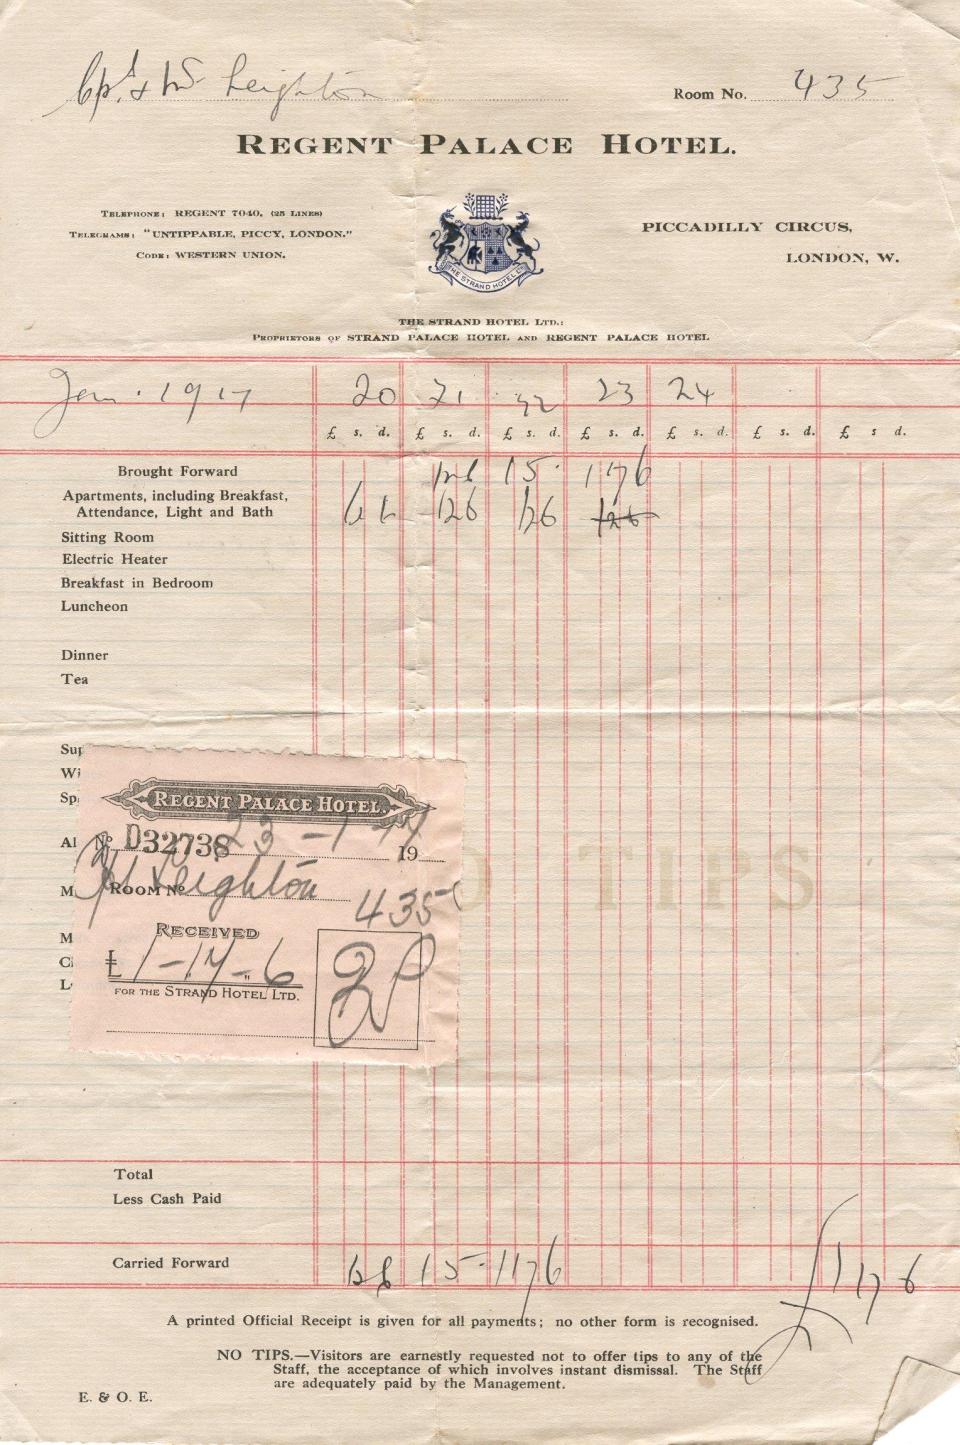 Cpt & Mrs Leighton Room No. 435
REGENT PALACE HOTEL.
TELEPHONE: REGENT 7040. (25 LINES)
TELEGRAMS: "UNTIPPABLE, PICCY, LONDON."
CODE: WESTERN UNION.
PICCADILLY CIRCUS,
LONDON, W.
THE STRAND HOTEL LTD
THE STRAND HOTEL LTD.:
PROPRIETORS OF STRAND PALACE HOTEL AND REGENT PALACE HOTEL
Jan. 1917 20 21 22 23 24
£ s. d. £ s. d. £ s. d. £ s. d. £ s. d. £ s. d. £ s d.
Brought Forward 12 6 1 5 - 1 17 6
Apartments, including Breakfast,
Attendance, Light and Bath 12 6 12 6 12 6 12 6
Sitting Room
Electric Heater
Breakfast in Bedroom
Luncheon
Dinner
Tea
Sup
Wi
Sp
Al
M
M
C
L
REGENT PALACE HOTEL.
No D32738 23-1-17 19
Cpt Leighton
ROOM No 435
RECEIVED
£1-17-6
FOR THE STRAND HOTEL LTD.
NO TIPS
Total
Less Cash Paid
Carried Forward 12 6 1 5 - 1 17 6 £1 17 6
A printed Official Receipt is given for all payments; no other form is recognised.
NO TIPS.—Visitors are earnestly requested not to offer tips to any of the
Staff, the acceptance of which involves instant dismissal. The Staff
are adequately paid by the Management.
E. & O. E.